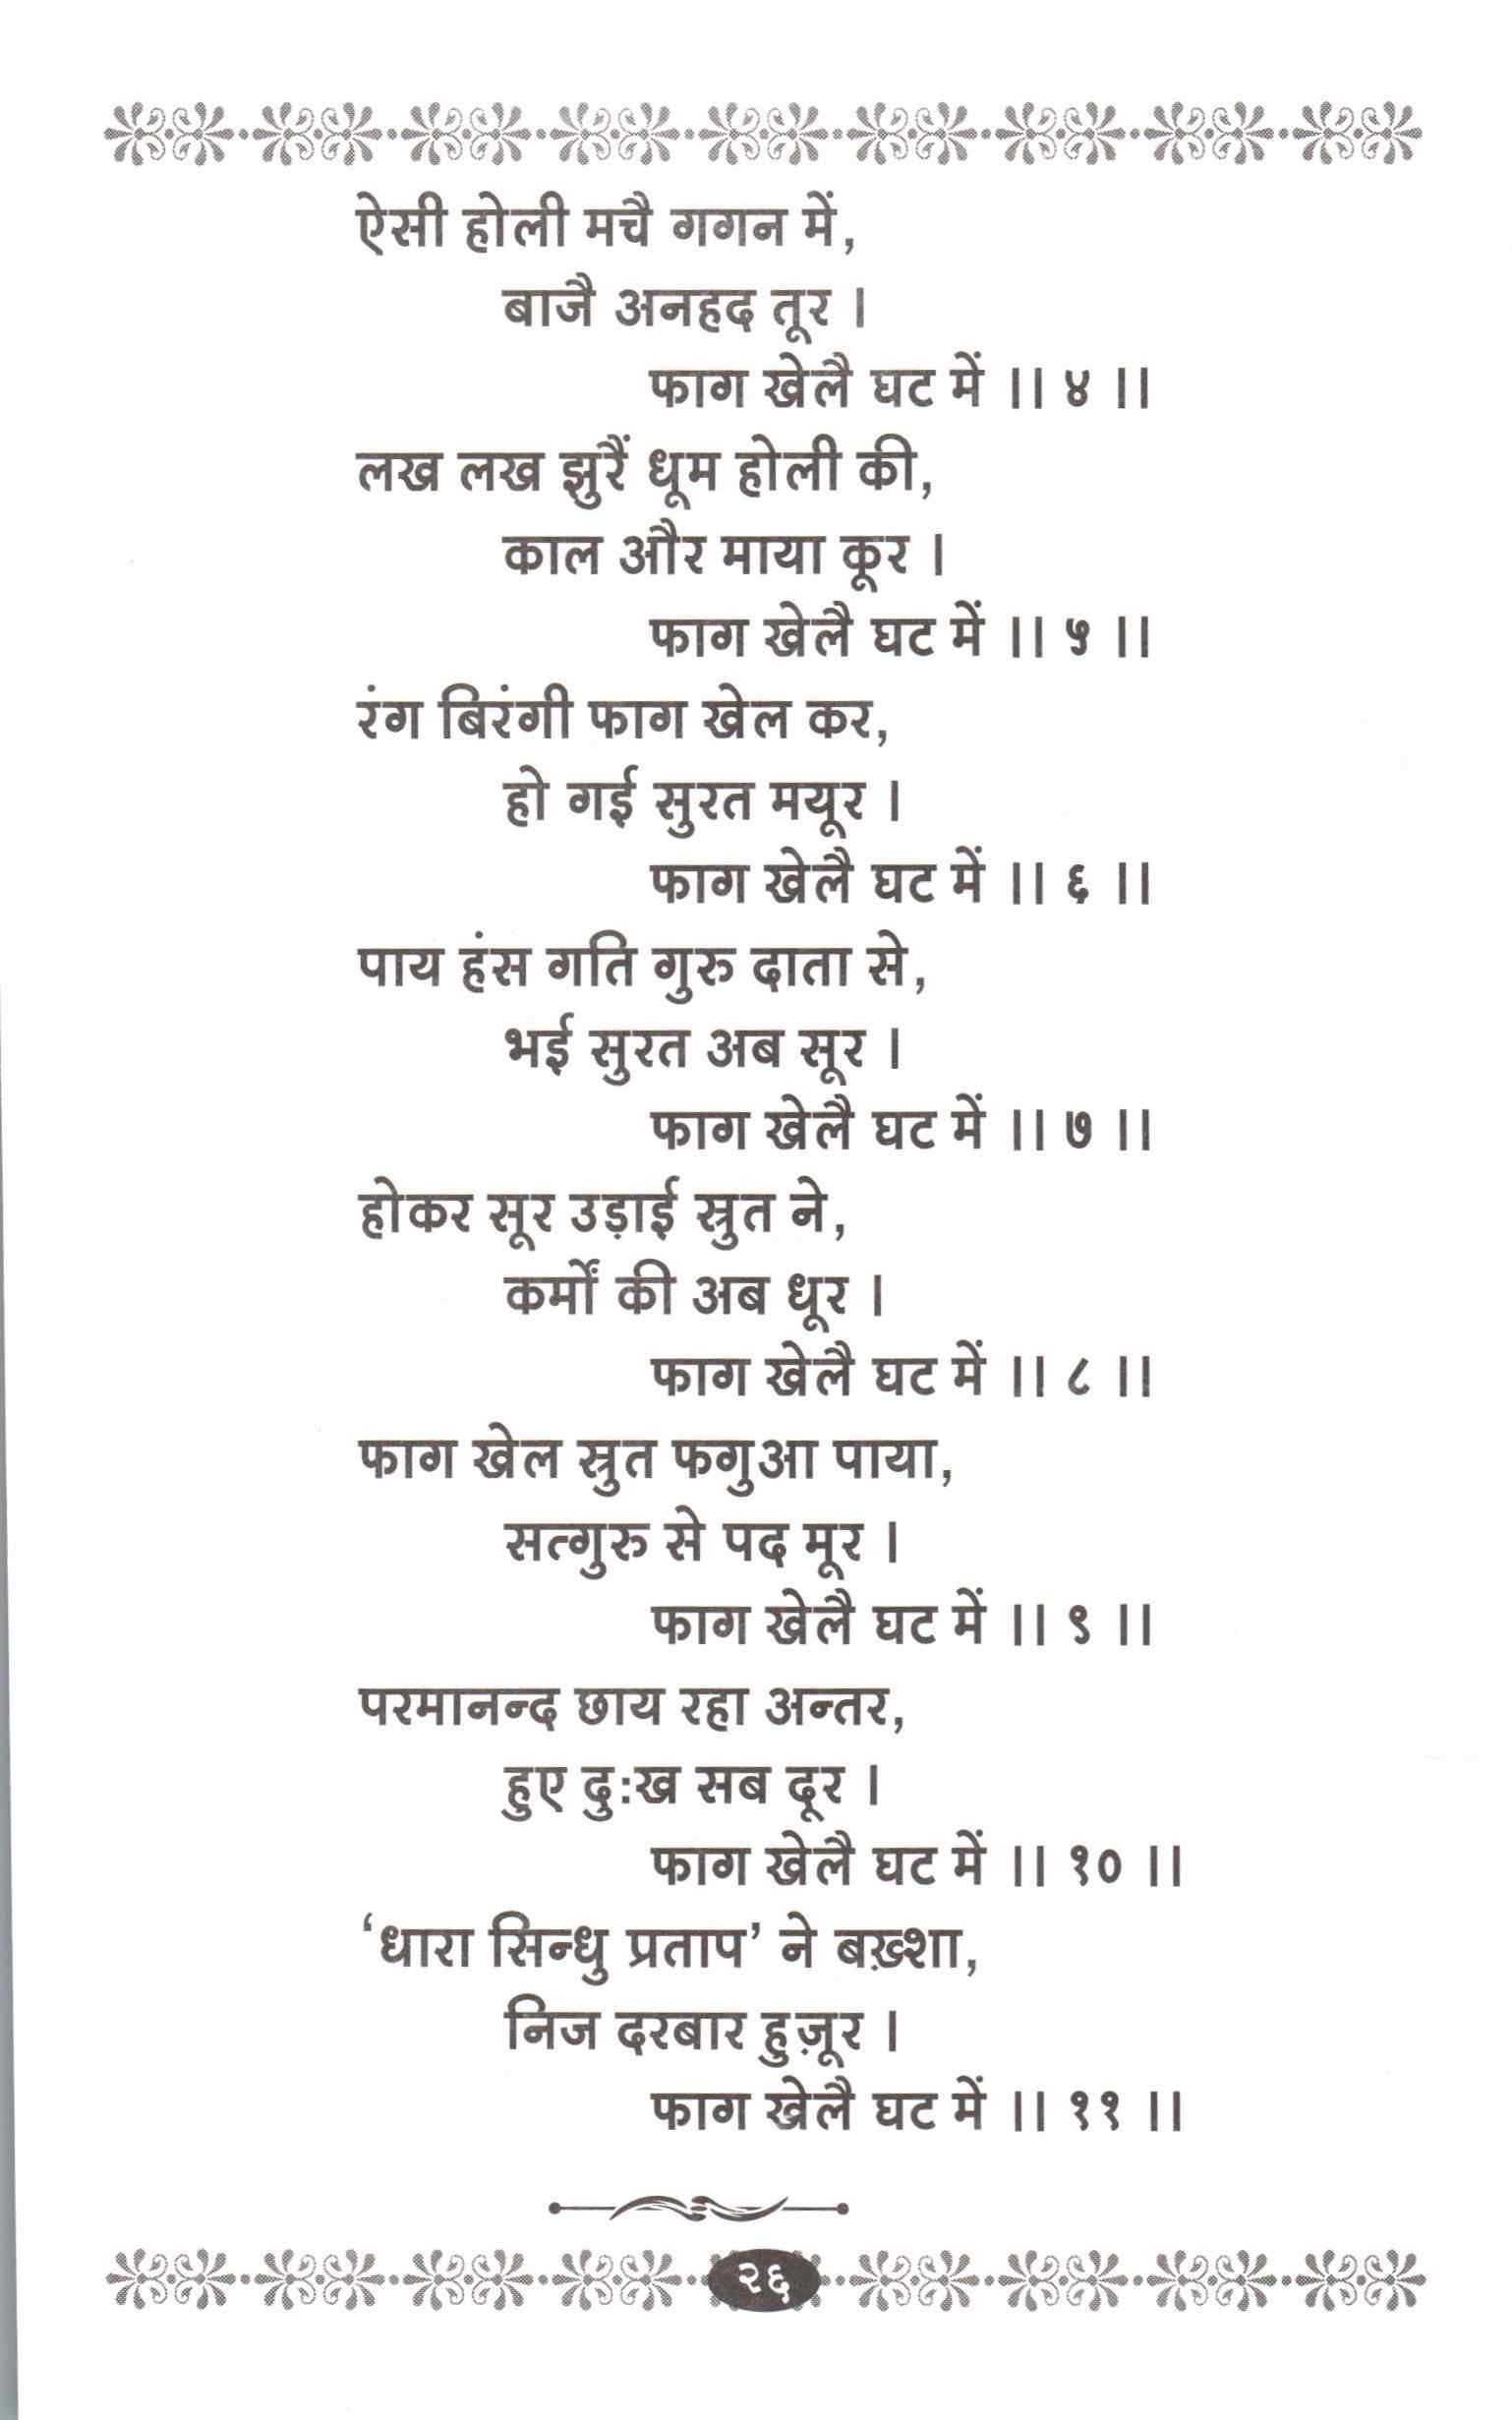 ऐसी होली मचै गगन में,
बाजै अनहद तूर ।
फाग खेलै घट में ।। ४ ।।
लख लख झुरैं धूम होली की,
काल और माया कूर ।
फाग खेलै घट में ।। ५ ।।
रंग बिरंगी फाग खेल कर,
हो गई सुरत मयूर ।
फाग खेलै घट में ।। ६ ।।
पाय हंस गति गुरु दाता से,
भई सुरत अब सूर ।
फाग खेलै घट में ।। ७ ।।
होकर सूर उड़ाई स्रुत ने,
कर्मों की अब धूर ।
फाग खेलै घट में ।। ८ ।।
फाग खेल स्रुत फगुआ पाया,
सत्गुरु से पद मूर ।
फाग खेलै घट में ।। ९ ।।
परमानन्द छाय रहा अन्तर,
हुए दुःख सब दूर ।
फाग खेलै घट में ।। १० ।।
‘धारा सिन्धु प्रताप’ ने बख़्शा,
निज दरबार हुज़ूर ।
फाग खेलै घट में ।। ११ ।।
२६